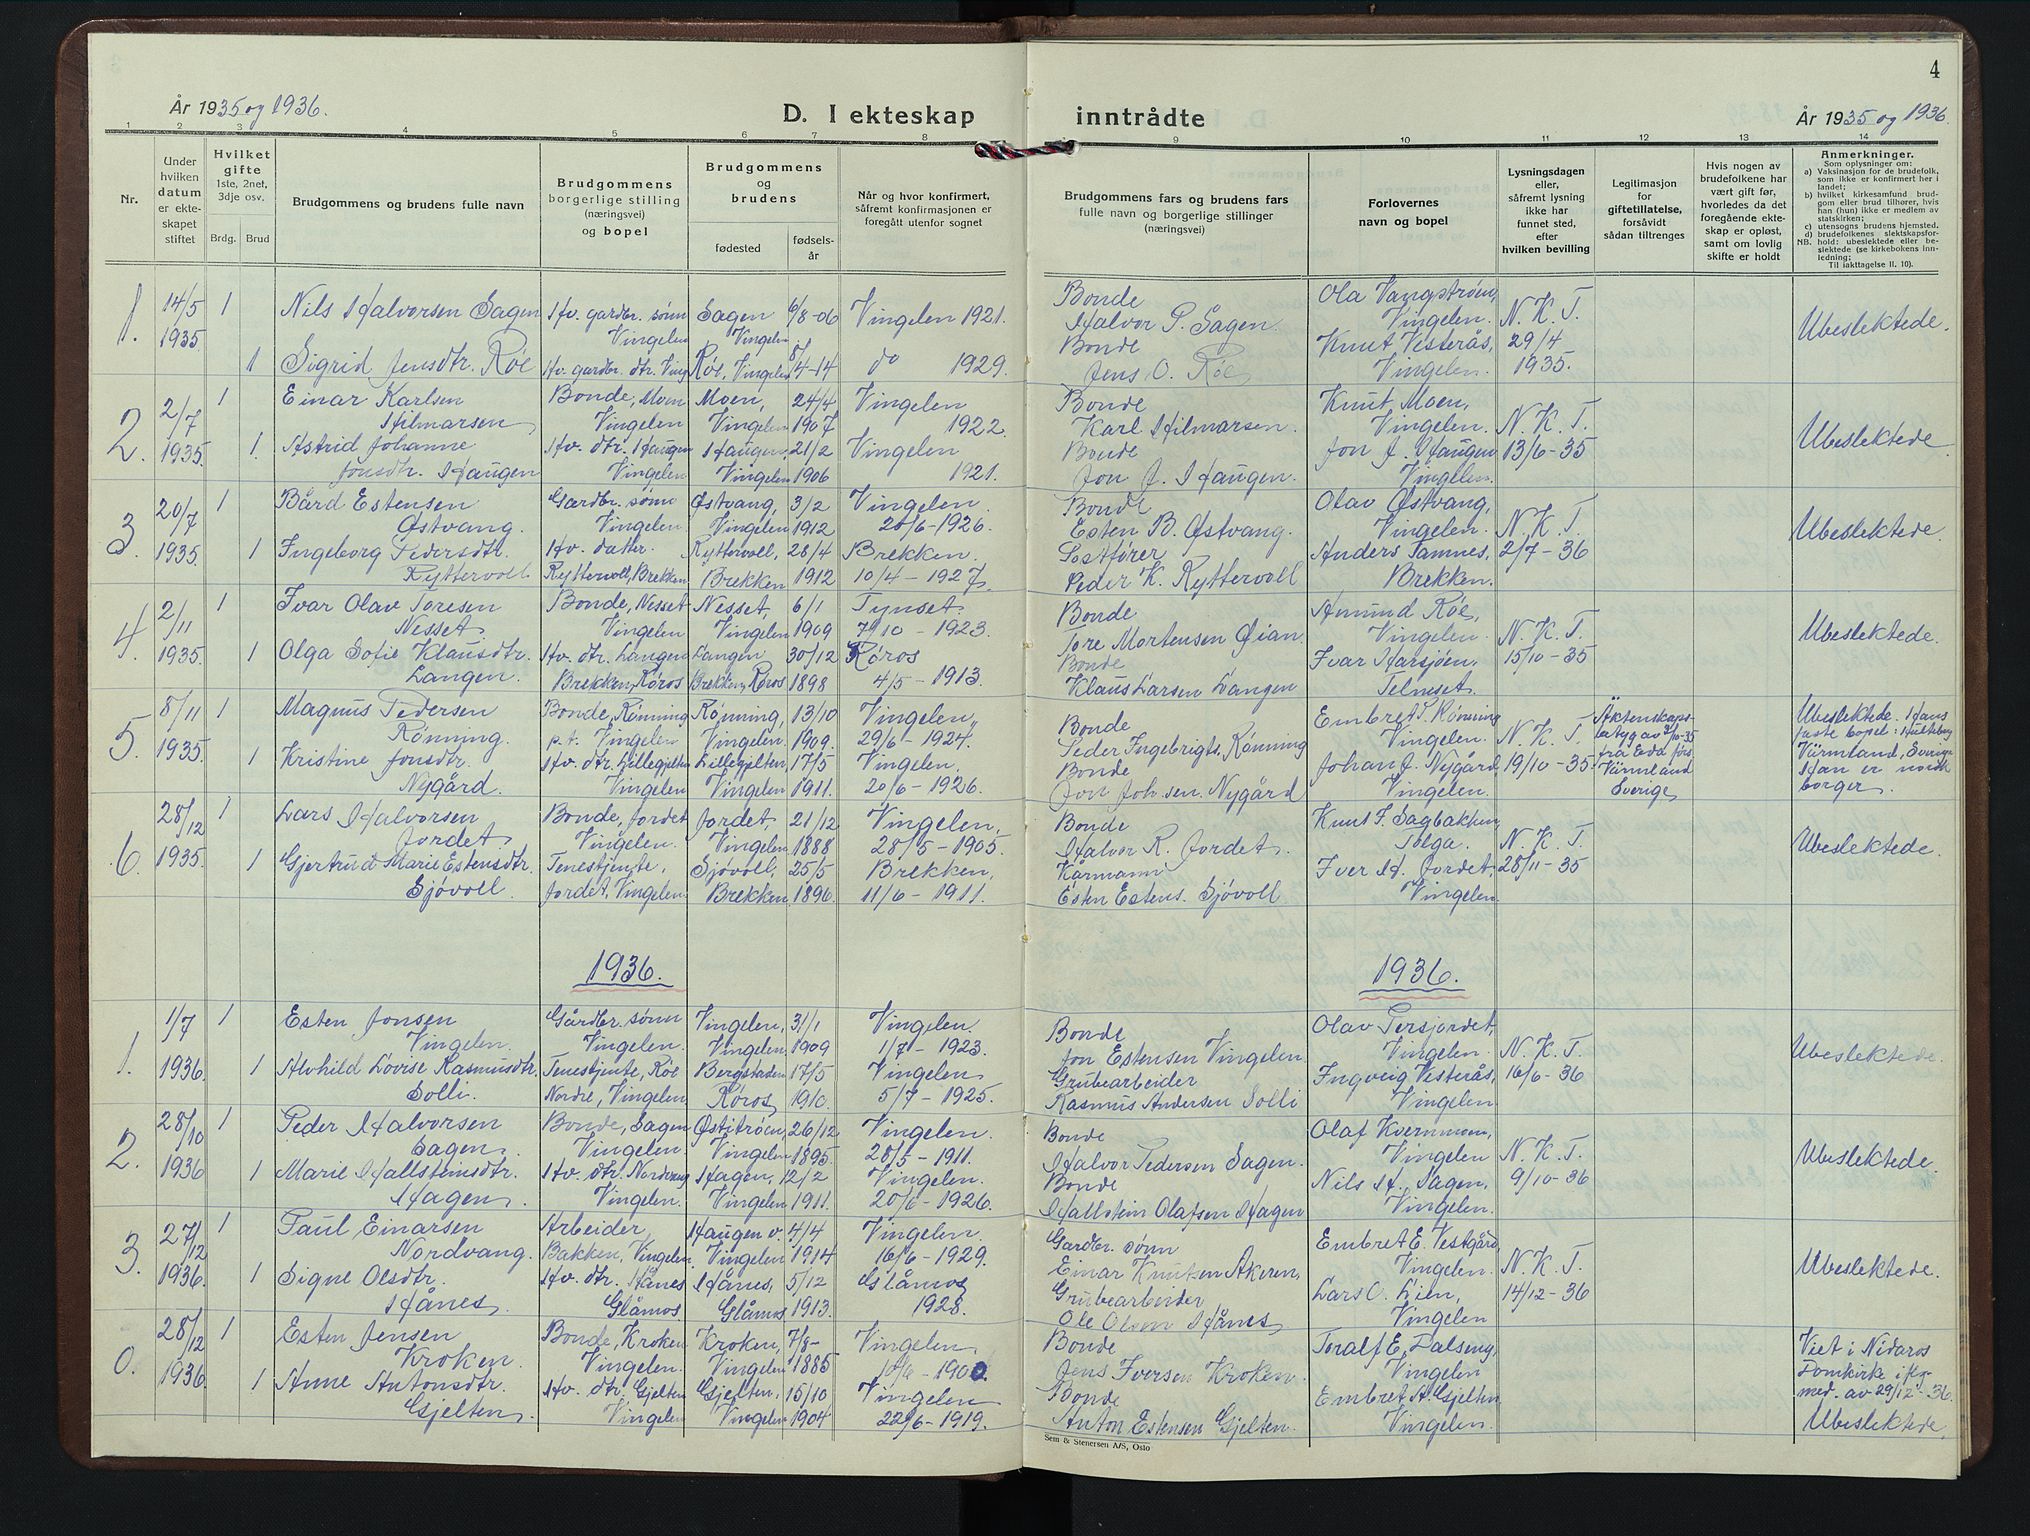 År 1935 og 1936.
D. I ekteskap
inntrådte
4
År 1935 og 1936.
1 2 3 4 5 6 7 8 9 10 11 12 13 14
Nr.
Under hvilken datum er ekteskapet stiftet
Hvilket gifte 1ste, 2net, 3dje osv.
Brdg. Brud
Brudgommens og brudens fulle navn
Brudgommens borgerlige stilling (næringsvei) og bopel
Brudgommens og brudens
fødested
fødselsår
Når og hvor konfirmert, såfremt konfirmasjonen er foregått utenfor sognet
Brudgommens fars og brudens fars fulle navn og borgerlige stillinger (næringsvei)
Forlovernes navn og bopel
Lysningsdagen eller, såfremt lysning ikke har funnet sted, efter hvilken bevilling
Legitimasjon for giftetillatelse, forsåvidt sådan tiltrenges
Hvis nogen av brudefolkene har vært gift før, hvorledes da det foregående ekteskap er opløst, samt om lovlig skifte er holdt
Anmerkninger.
Som oplysninger om:
a) Vaksinasjon for de brudefolk, som ikke er konfirmert her i landet;
b) hvilket kirkesamfund brudgom eller brud tilhører, hvis han (hun) ikke er medlem av statskirken;
c) utensogns brudens hjemsted.
d) brudefolkenes slektskapsforhold: ubeslektede eller beslektede (se kirkebokens innledning;
NB.
Til iakttagelse II. 10).
1. 14/5 1935. 1 Nils Halvorsen Sagen Hv. gardbr. sønn Vingelen Sagen Vingelen 6/8-06 Vingelen 1921. Bonde Halvor P. Sagen. Ola Vangstrøen, Vingelen. N. K. T. 29/4 1935. Ubeslektede.
1 Sigrid Jensdtr. Røe Hv. gardbr. dtr. Ving Røe, Vingelen 8/4-14 do 1929. Bonde Jens O. Røe Knut Vesterås, Vingelen.
2. 2/7 1935. 1 Einar Karlsen Hilmarsen Bonde, Moen Vingelen Moen, Vingelen 24/4 1907 Vingelen 1922. Bonde Karl Hilmarsen. Knut Moen, Vingelen. N. K. T. 13/6-35 Ubeslektede.
1. Astrid Johanne Jonsdtr. Haugen Hv. dtr. Haugen Vingelen Haugen, Vingelen 21/2 1906 Vingelen 1921. Bonde Jon J. Haugen. Jon J. Haugen Vingelen.
3. 20/7 1935. 1 Bård Estensen Østvang. Gardbr. sønn Vingelen Østvang, Vingelen 3/2 1912 Vingelen 20/6-1926. Bonde Esten B. Østvang. Olav Østvang, Vingelen. N. K. T. 2/7-36 Ubeslektede.
1 Ingeborg Pedersdtr. Ryttervoll Hv. datter. Ryttervoll, Brekken Ryttervoll, Brekken 28/4 1912 Brekken. 10/4-1927. Postfører Peder K. Ryttervoll Anders Tamnes, Brekken.
4. 2/11 1935. 1 Ivar Olav Toresen Nesset Bonde, Nesset Vingelen Nesset, Vingelen 6/1 1909 Tynset. 7/10-1923. Bonde Tore Mortensen Øian Amund Røe, Vingelen. N. K. T. 15/10-35 Ubeslektede.
1 Olga Sofie Klausdtr. Langen. Hv. dtr. Langen Brekken, Røros Langen Brekken, Røros 30/12 1898 Røros 4/5-1913. Bonde Klaus Larsen Langen Ivar Harsjøen, Telneset.
5. 8/11 1935. 1 Magnus Pedersen Rønning. Bonde, Rønning p.t. Vingelen Rønning, Vingelen. 13/10 1909. Vingelen, 29/6-1924. Bonde Peder Ingebrigts. Rønning Embret P. Rønning Vingelen. N. K. T. 19/10-35. Äktenskapsbetyg av 9/10-35 fra Eda förs. Värmland Sverige Ubeslektede. Hans faste bopel: Värmland, Sverige Han er norsk borger.
1 Kristine Jonsdtr. Nygård. Hv. dtr. Lillegjelten Vingelen Lillegjelten, Vingelen 17/5 1911. Vingelen, 20/6-1926. Bonde Jon Joh.sen. Nygård Johan J. Nygård, Vingelen.
6. 28/12 1935. 1 Lars Halvorsen Jordet. Bonde, Jordet Vingelen. Jordet, Vingelen 21/12 1888 Vingelen, 28/5-1905. Bonde Halvor R. Jordet. Knut I. Sagbakken Tolga. N. K. T. 28/11-35 Ubeslektede.
1 Gjertrud Marie Estensdtr. Sjøvoll. Tenestjente, Jordet, Vingelen. Sjøvoll, Brekken 25/5 1896. Brekken, 11/6-1911. Kårmann Esten Estens. Sjøvoll Iver H. Jordet, Vingelen.
1936.
1936.
1. 1/7 1936. 1 Esten Jonsen Vingelen. Gårdbr. sønn Vingelen. Vingelen, Vingelen 31/1 1909 Vingelen. 1/7-1923. Bonde Jon Estensen Vingelen Olav Persjordet, Vingelen. N. K. T. 16/6-36 Ubeslektede.
1 Alvhild Lovise Rasmusdtr. Solli. Tenestjente, Røe Nordre, Vingelen Bergstaden Røros 17/5 1910. Vingelen 5/7-1925. Grubearbeider Rasmus Andersen Solli Ingveig Vesterås, Vingelen
2. 28/10 1936 1 Peder Halvorsen Sagen. Bonde, Sagen Vingelen Østitrøen, Vingelen 26/12 1895. Vingelen. 28/5-1911. Bonde Halvor Pedersen Sagen. Olaf Kvernmoen, Vingelen N. K. T. 9/10-36 Ubeslektede.
1 Marie Hallsteinsdtr. Hagen. Hv. dtr. Vingelen. Hagen, Vingelen 12/2 1911. Vingelen. 20/6-1926. Bonde Hallstein Olafsen Hagen Nils H. Sagen, Vingelen.
3. 27/12 1936. 1 Paul Einarsen Nordvang. Arbeider, Bakken, Vingelen Haugen v. Vingelen 4/4 1914 Vingelen. 16/6-1929. Gardbr. sønn Einar Knutsen Akeren, Embret E. Vestgård, Vingelen. N. K. T. 14/12-36 Ubeslektede.
1 Signe Olsdtr. Hånes. Hv. dtr. Hånes Glåmos Hånes, Glåmos 5/12 1913. Glåmos 1928. Grubearbeider Ole Olsen Hånes Lars O. Lien, Vingelen
0. 28/12 1936. 1 Esten Jensen Kroken. Bonde, Kroken Vingelen. Kroken, Vingelen 7/8-1885 Vingelen 10/6-1900. Bonde Jens Iversen Kroken. Toralf E. Dalseng, Vingelen Viet i Nidaros Domkirke iflg. med. av 29/12-36. Ubeslektede.
1 Anne Antonsdtr. Gjelten. Hv. dtr. Gjelten Vingelen Gjelten, Vingelen 15/10 1904 Vingelen 22/6-1919. Bonde Anton Estensen Gjelten. Embret A. Gjelten Vingelen.
Sem & Stenersen A/S, Oslo